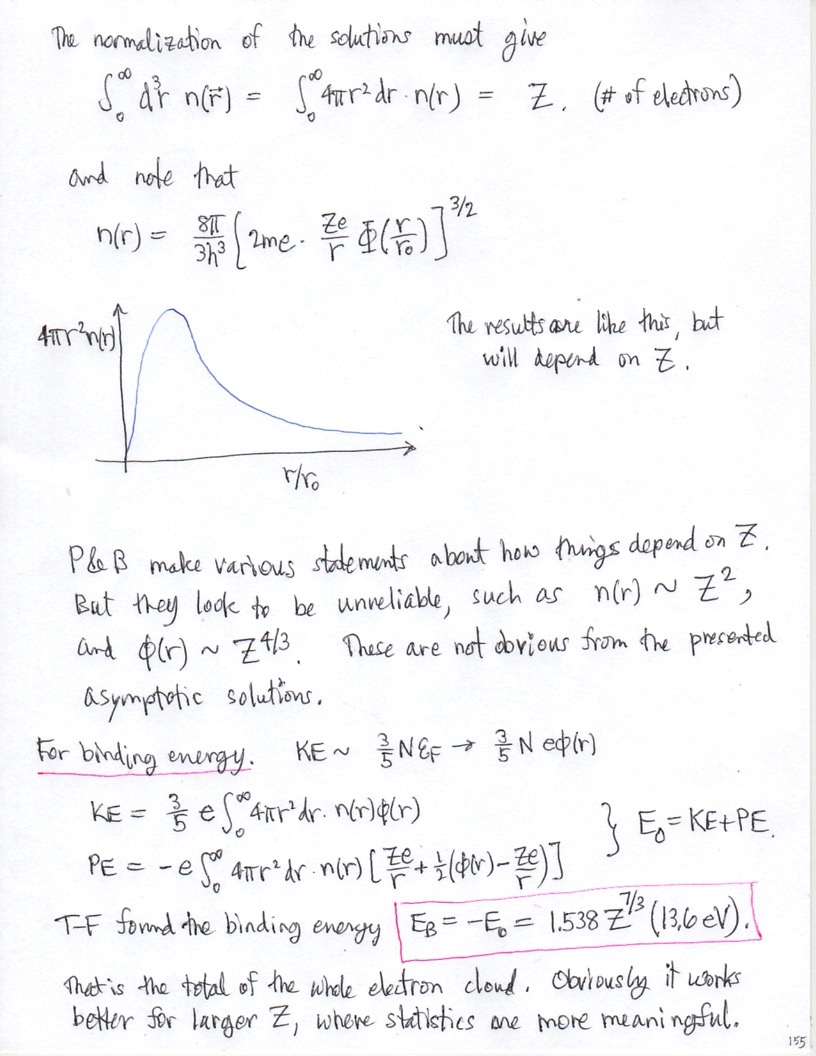 The normalization of the solutions must give
∫₀^∞ d³r n(r⃗) = ∫₀^∞ 4πr² dr · n(r) = Z. (# of electrons)
and note that
n(r) = 8π/3h³ [2me · Ze/r Φ(r/r₀)]^3/2
4πr²n(r)
The results are like this, but
will depend on Z.
r/r₀
P&B make various statements about how things depend on Z.
But they look to be unreliable, such as n(r) ~ Z²,
and φ(r) ~ Z^4/3. These are not obvious from the presented
asymptotic solutions.
For binding energy. KE ~ 3/5 N ε_F → 3/5 N eφ(r)
KE = 3/5 e ∫₀^∞ 4πr² dr · n(r) φ(r)
PE = -e ∫₀^∞ 4πr² dr · n(r) [Ze/r + 1/2 (φ(r) - Ze/r)]
} E₀ = KE + PE.
T-F found the binding energy E_B = -E₀ = 1.538 Z^7/3 (13.6 eV).
That is the total of the whole electron cloud. Obviously it works
better for larger Z, where statistics are more meaningful.
155